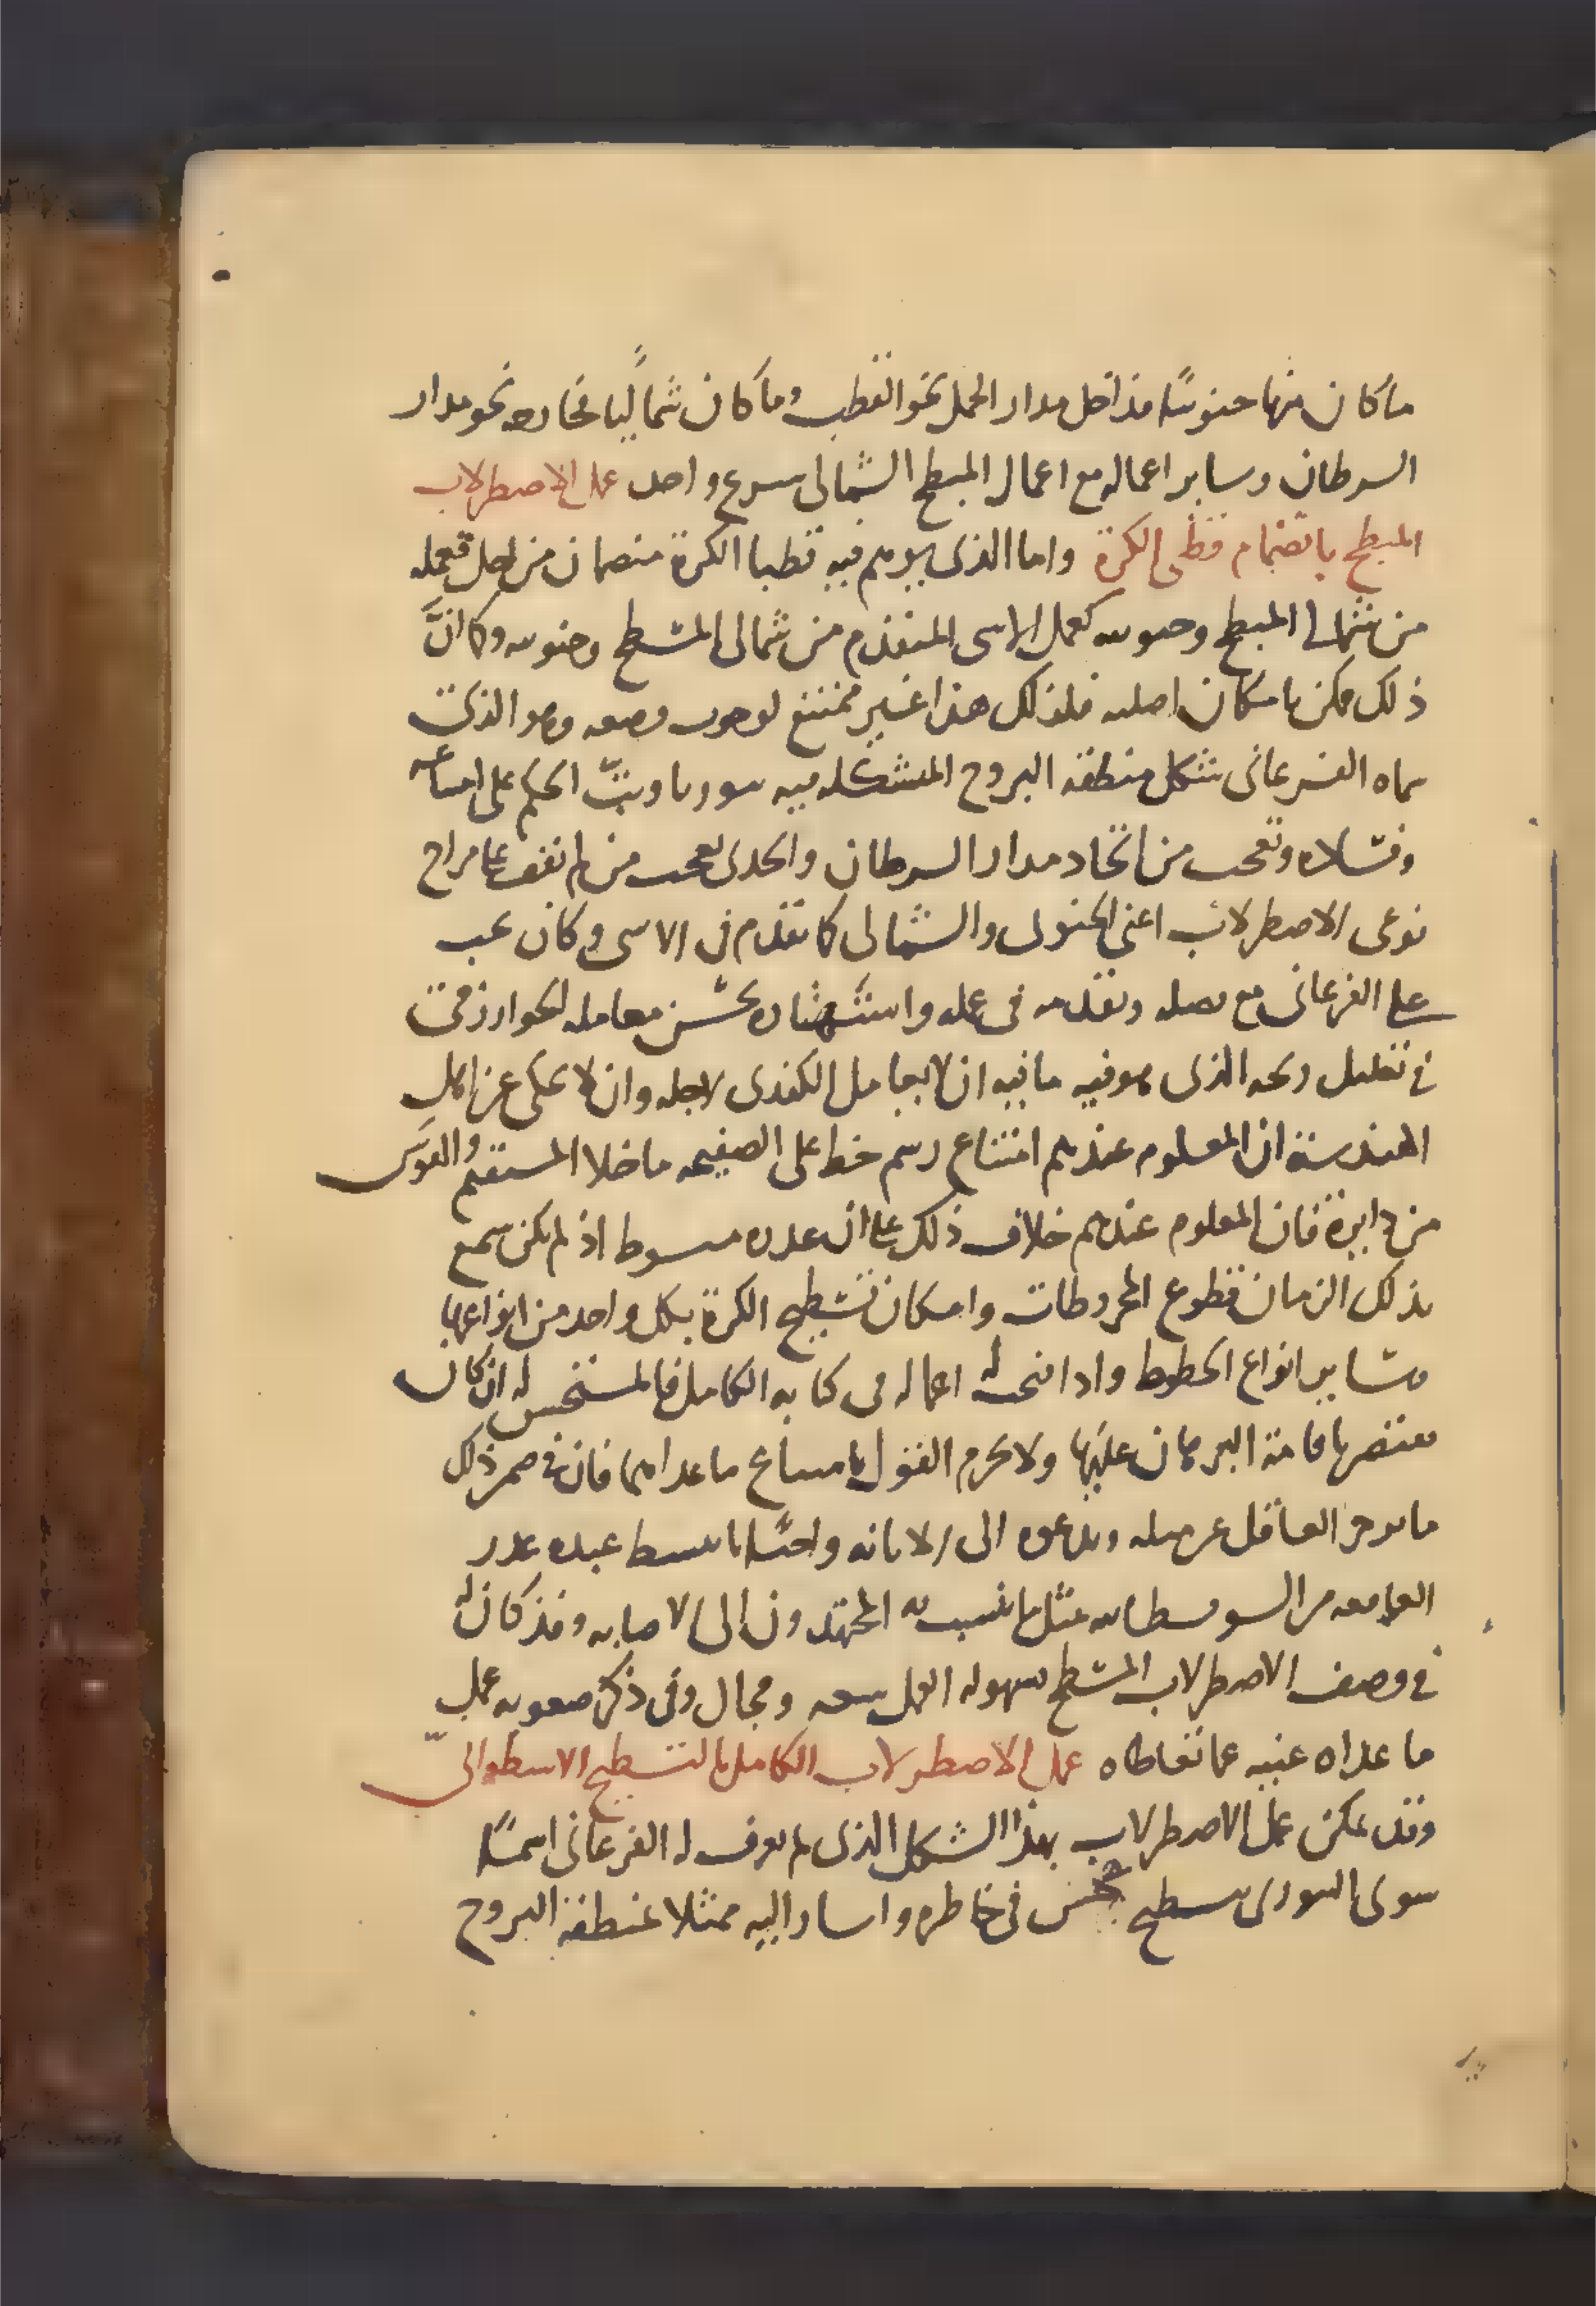 ما كان منها جنوبيًا فداخل مدار الحمل نحو القطب وما كان شماليًا فخارجه نحو مدار
السرطان وساير اعماله مع اعمال المبطح الشمالى شرع واحد عمل الاصطرلاب
المبطح بانضمام قطبى الكرة واما الذى يوهم فيه قطبا الكرة منضمان من اجل فعمله
من شمالى المبطح وجنوبيه كعمل الاسى المتقدم من شمالى المسطح وجنوبيه وكان
ذلك ممكن بامكان اصليه فلذلك هذا غير ممتنع لوجوب وضعه وهو الذى
سماه الفرغانى شكل منطقة البروج المتشكله فيه وبت الحكم على امتناعه
وفساده وتعجب من اتحاد مدار السرطان والجدى تعجب من لم يقف على مزاج
نوعى الاصطرلاب اعنى الجنوبى والشمالى كما تقدم فى الاسى وكان يجب
على الفرغانى مع فضله وتقدمه فى عمله واستشهاده بحسن معامله الخوارزمى
فى تعليل زيجه الذى هو فيه ما فيه ان لا يعامل الكندى لاجله وان لا يحكى عن اهل
الهندسة ان المعلوم عندهم امتناع رسم خط على الصفيحه ما خلا المستقيم والقوس
من دايرة فان المعلوم عندهم خلاف ذلك على ان عذره مبسوط اذ لم يكن سمع
بذلك الزمان قطوع المخروطات وامكان تسطيح الكرة بكل واحد من انواعها
وساير انواع الخطوط واذا اعماله فى كتابه الكامل فالمستحسن له ان كان
معتصر اقامة البرهان عليها ولا يحرم القول بامتناع ما عداهما فان فى ضمن ذلك
ما يزجر العاقل عن مثله ويدعوه الى الابانه عذر
من السوفسطائيه مثل ما ينسب به المجتهدون الى الاصابه وقد كان له
فى وصف الاصطرلاب المسطح بسهوله العمل سعه ومجال وفى ذكر صعوبه عمل
ما عداه غنيه عما تعاطاه عمل الاصطرلاب الكامل بالتسطيح الاسطوانى
وقد يمكن عمل الاصطرلاب بهذا الشكل الذى لم يعرف له الفرغانى اسمًا
سوى السورى بسطيح فى خاطره واشار اليه ممثلا بمنطقة البروج